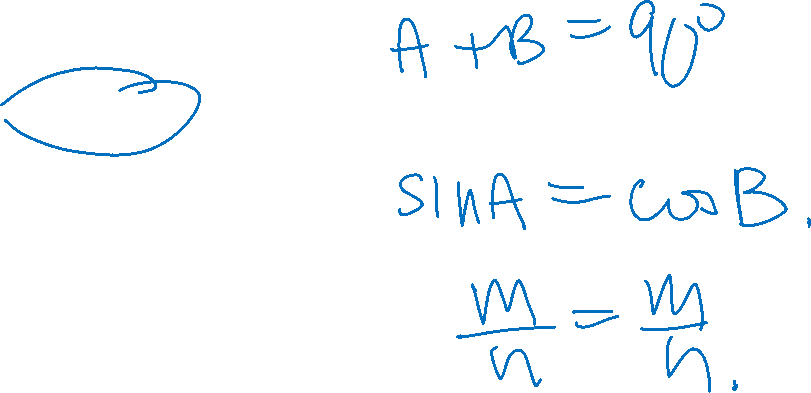 A + B = 90°
sinA = cosB.
m/n = m/n.